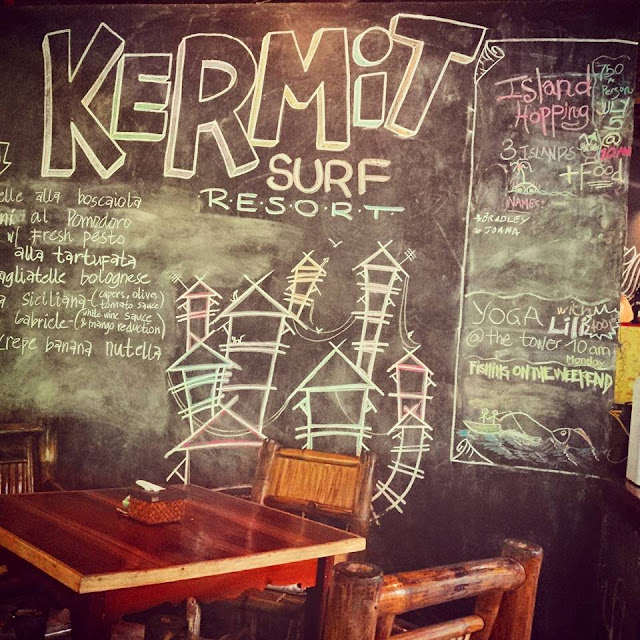 KERMIT
SURF
RESORT
elle alla boscaiola
ni al Pomodoro
w/ Fresh pesto
alla tartufata
agliatelle bolognese
a Siciliana-(capers, olive,
tomato sauce)
Gabriele-(white wine Sauce
& mango reduction)
Crepe banana nutella
Island
Hopping
3 ISLANDS
+ Food
NAMES:
BRADLEY
JOANA
750
Per
Person
JULY
5
@
YOGA with
Lili
400
@ the tower 10am
Monday
FISHING ON THE WEEKEND